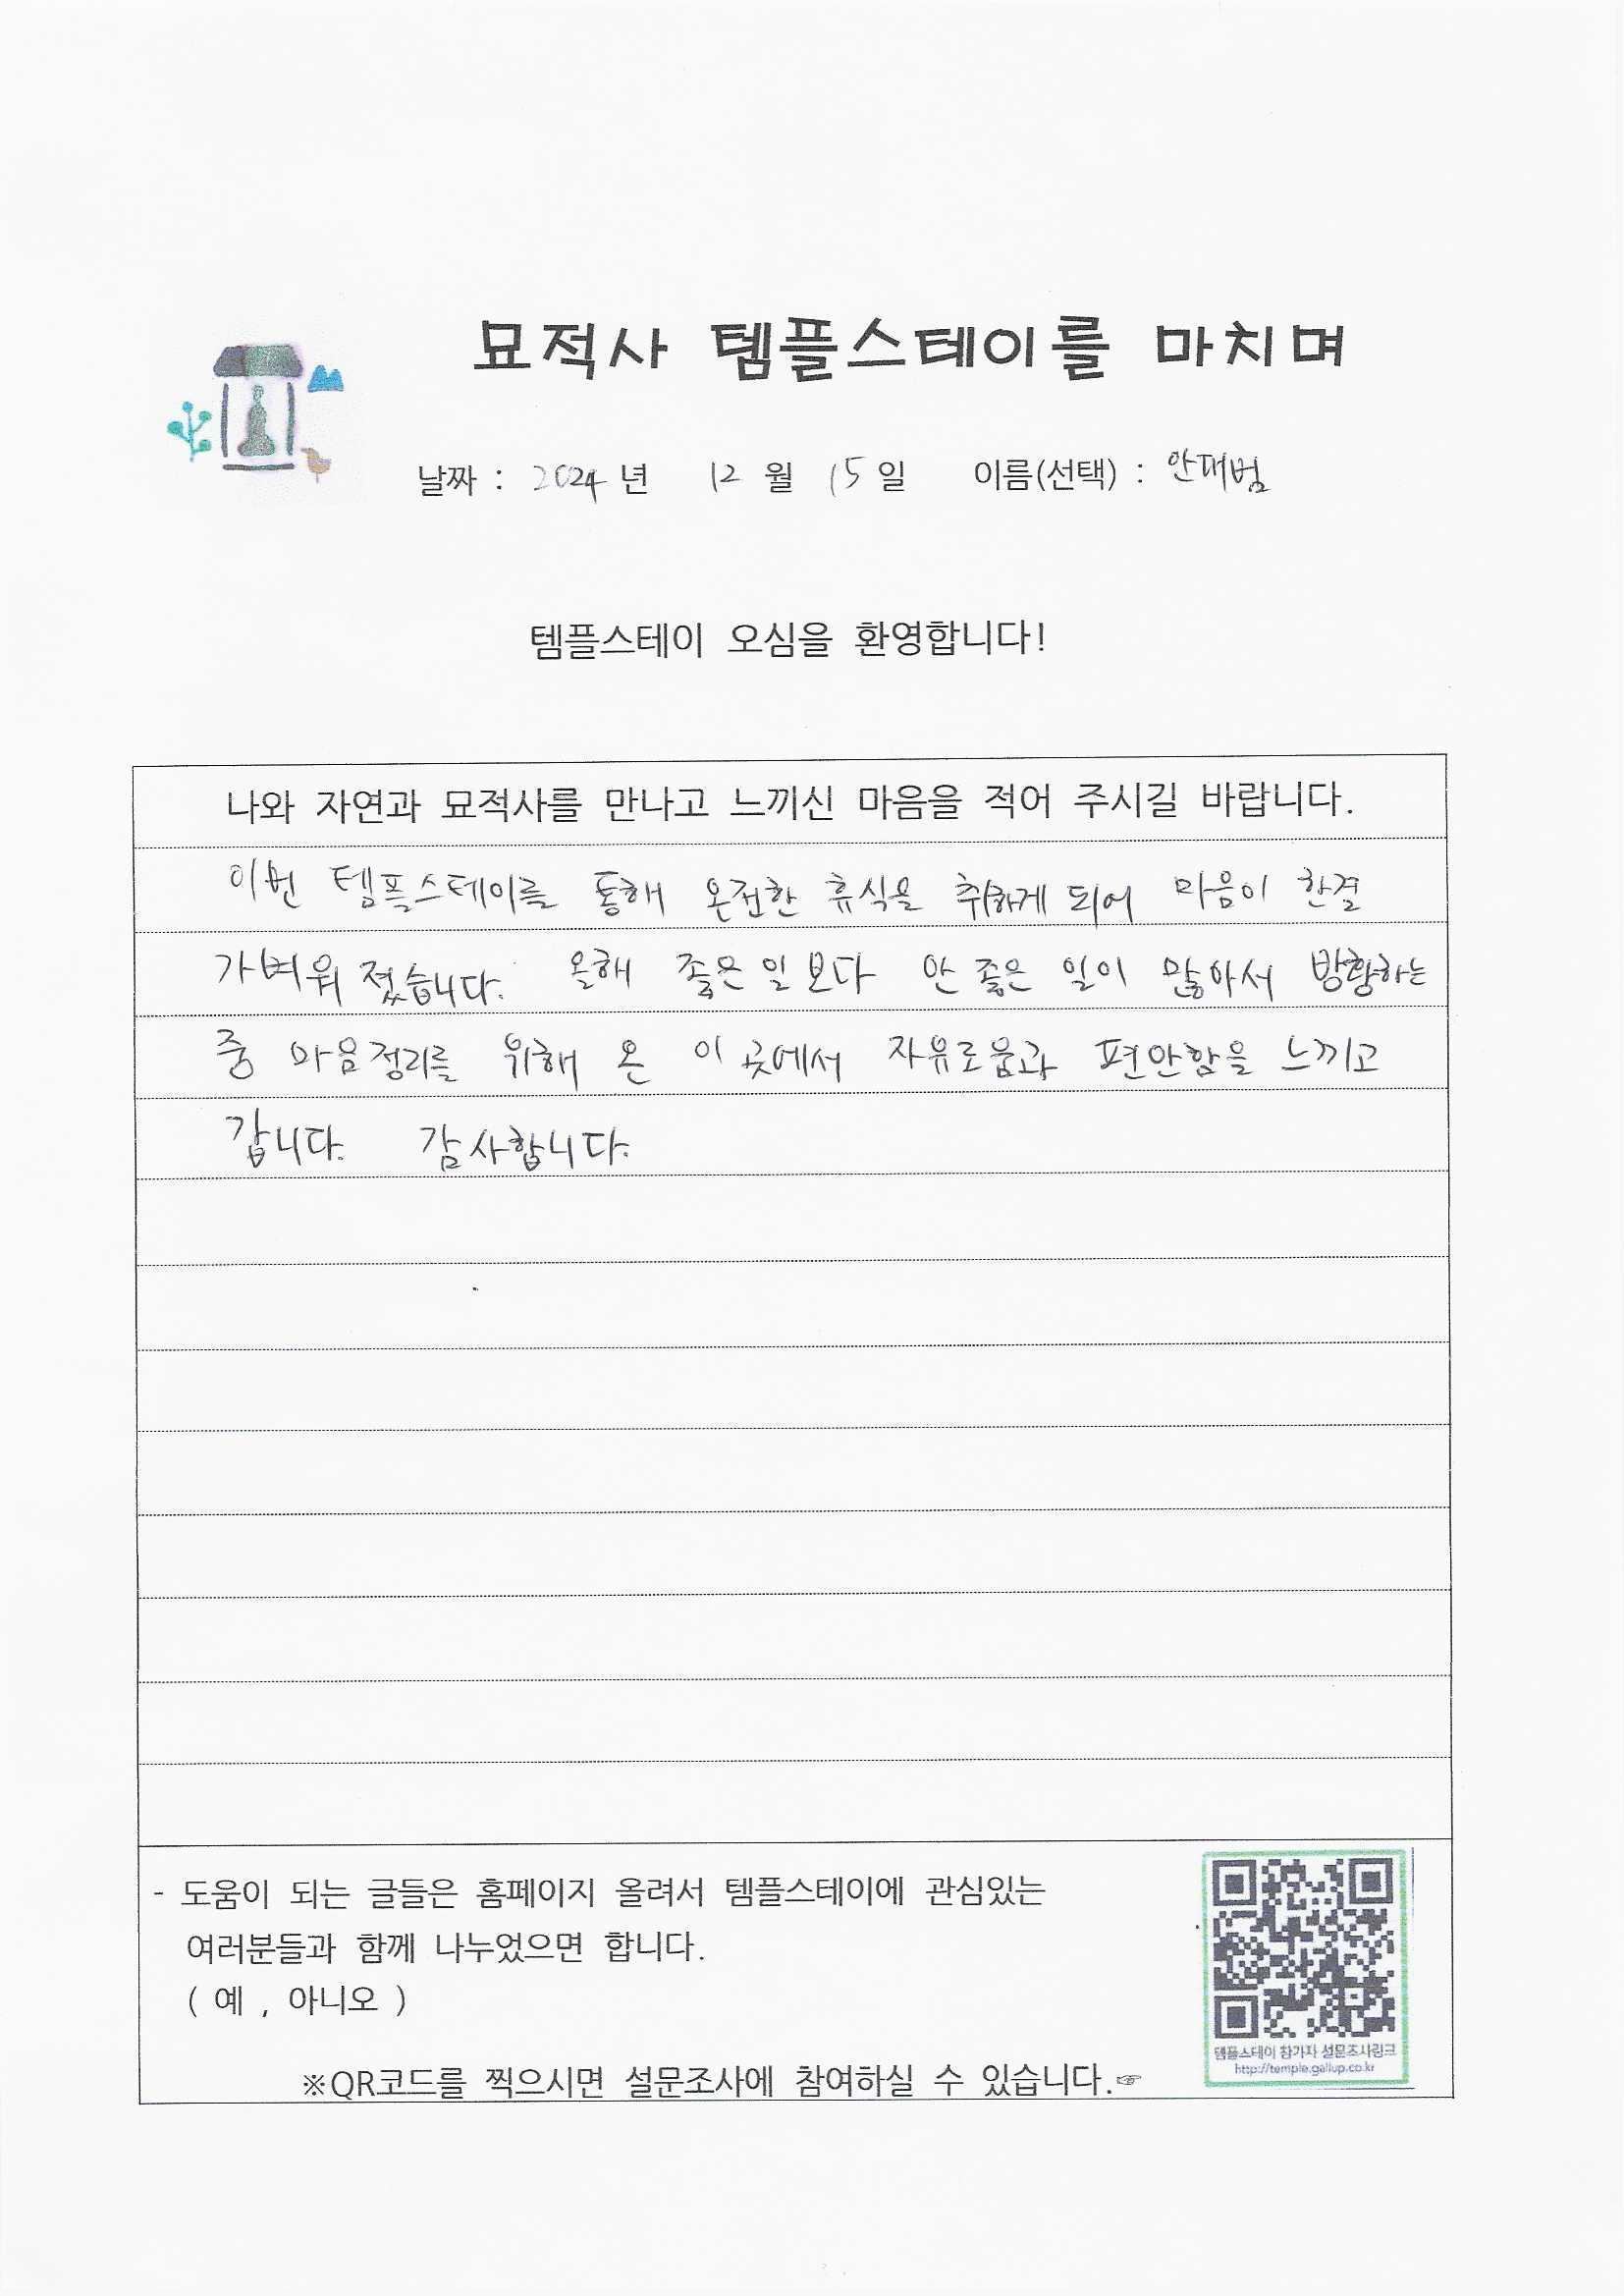 묘적사 템플스테이를 마치며
날짜 : 2024 년 12 월 15 일 이름(선택) : 안재범
템플스테이 오심을 환영합니다!
나와 자연과 묘적사를 만나고 느끼신 마음을 적어 주시길 바랍니다.
이번 템플스테이를 통해 온전한 휴식을 취하게 되어 마음이 한결
가벼워 졌습니다. 올해 좋은 일 보다 안 좋은 일이 많아서 방황하는
중 마음정리를 위해 온 이 곳에서 자유로움과 편안함을 느끼고
갑니다. 감사합니다.
- 도움이 되는 글들은 홈페이지 올려서 템플스테이에 관심있는
여러분들과 함께 나누었으면 합니다.
( 예 , 아니오 )
템플스테이 참가자 설문조사링크
http://temple.gallup.co.kr
※QR코드를 찍으시면 설문조사에 참여하실 수 있습니다.☞